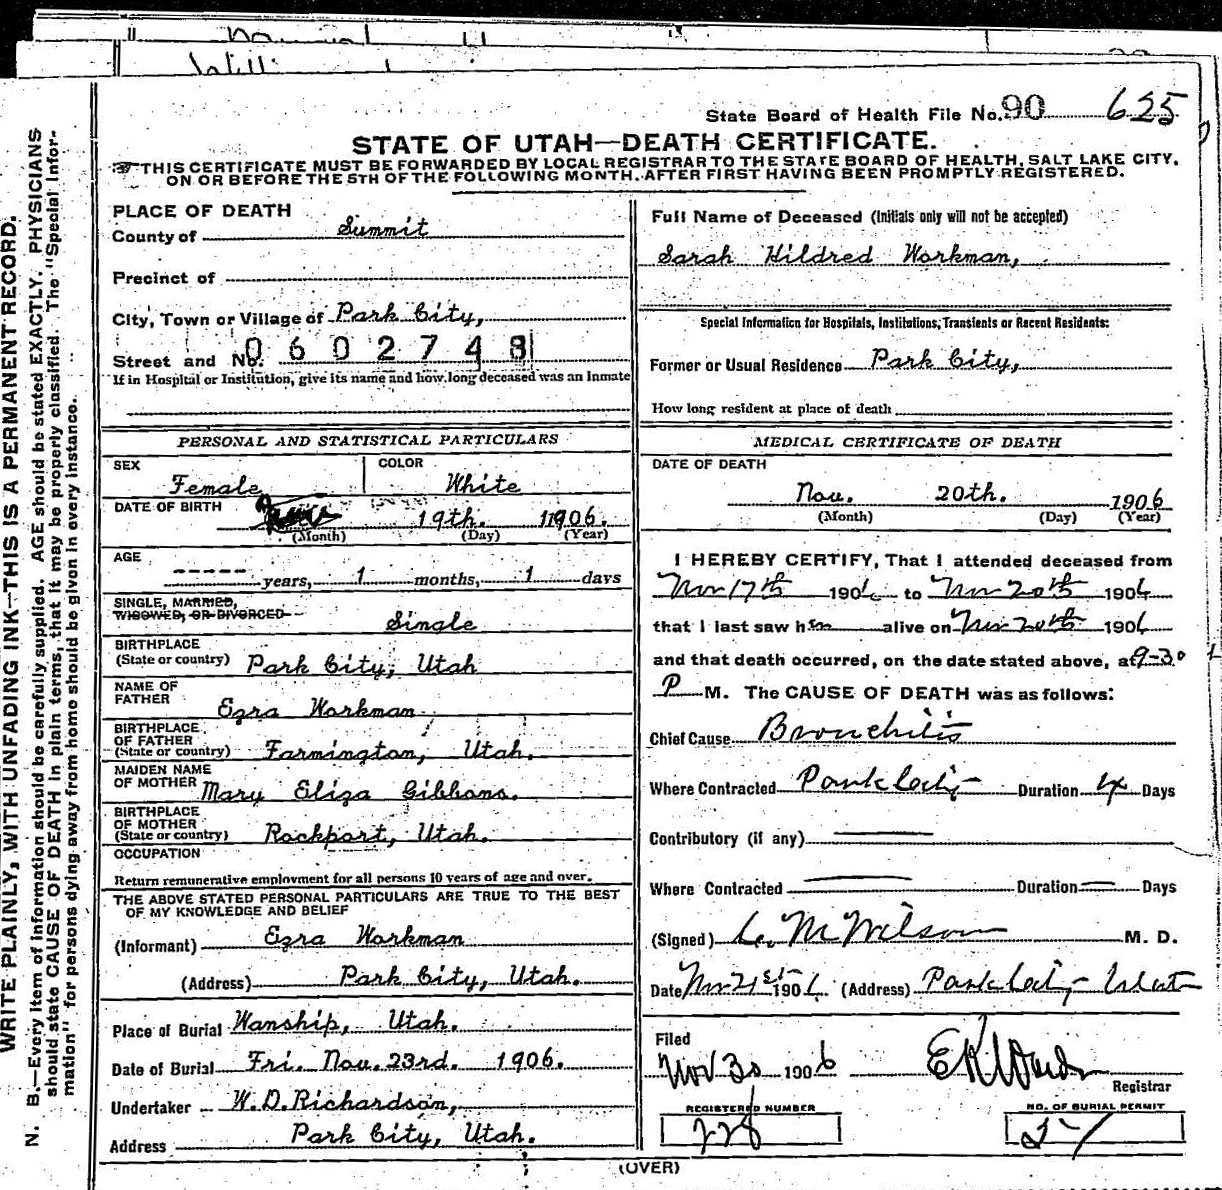 State Board of Health File No. 90 625
STATE OF UTAH—DEATH CERTIFICATE.
THIS CERTIFICATE MUST BE FORWARDED BY LOCAL REGISTRAR TO THE STATE BOARD OF HEALTH, SALT LAKE CITY,
ON OR BEFORE THE 5TH OF THE FOLLOWING MONTH, AFTER FIRST HAVING BEEN PROMPTLY REGISTERED.
WRITE PLAINLY, WITH UNFADING INK—THIS IS A PERMANENT RECORD.
N. B.—Every item of information should be carefully supplied. AGE should be stated EXACTLY. PHYSICIANS
should state CAUSE OF DEATH in plain terms, that it may be properly classified. The "Special Infor-
mation" for persons dying away from home should be given in every instance.
PLACE OF DEATH
County of Summit
Precinct of
City, Town or Village of Park City,
Street and No. 0602748
If in Hospital or Institution, give its name and how long deceased was an Inmate
PERSONAL AND STATISTICAL PARTICULARS
SEX Female COLOR White
DATE OF BIRTH 19th. 1906.
(Month) (Day) (Year)
AGE
----- years, 1 months, 1 days
SINGLE, MARRIED,
WIDOWED, OR DIVORCED Single
BIRTHPLACE
(State or country) Park City, Utah
NAME OF
FATHER Ezra Workman
BIRTHPLACE
OF FATHER
(State or country) Farmington, Utah.
MAIDEN NAME
OF MOTHER Mary Eliza Gibbons.
BIRTHPLACE
OF MOTHER
(State or country) Rockport, Utah.
OCCUPATION
Return remunerative employment for all persons 10 years of age and over.
THE ABOVE STATED PERSONAL PARTICULARS ARE TRUE TO THE BEST
OF MY KNOWLEDGE AND BELIEF
(Informant) Ezra Workman
(Address) Park City, Utah.
Place of Burial Wanship, Utah.
Date of Burial Fri. Nov. 23rd. 1906.
Undertaker W.D. Richardson,
Address Park City, Utah.
Full Name of Deceased (Initials only will not be accepted)
Sarah Hildred Workman,
Special Information for Hospitals, Institutions, Transients or Recent Residents:
Former or Usual Residence Park City,
How long resident at place of death
MEDICAL CERTIFICATE OF DEATH
DATE OF DEATH
Nov. 20th. 1906
(Month) (Day) (Year)
I HEREBY CERTIFY, That I attended deceased from
Nov 17th 1906 to Nov 20th 1906
that I last saw h alive on Nov 20th 1906
and that death occurred, on the date stated above, at 9-30
P M. The CAUSE OF DEATH was as follows:
Chief Cause Bronchitis
Where Contracted Park City Duration 4 Days
Contributory (if any)
Where Contracted Duration — Days
(Signed) M Wilson M. D.
Date Nov 21st 1906 (Address) Park City Utah
Filed
Nov 30 1906 Registrar
REGISTERED NUMBER NO. OF BURIAL PERMIT
228
(OVER)